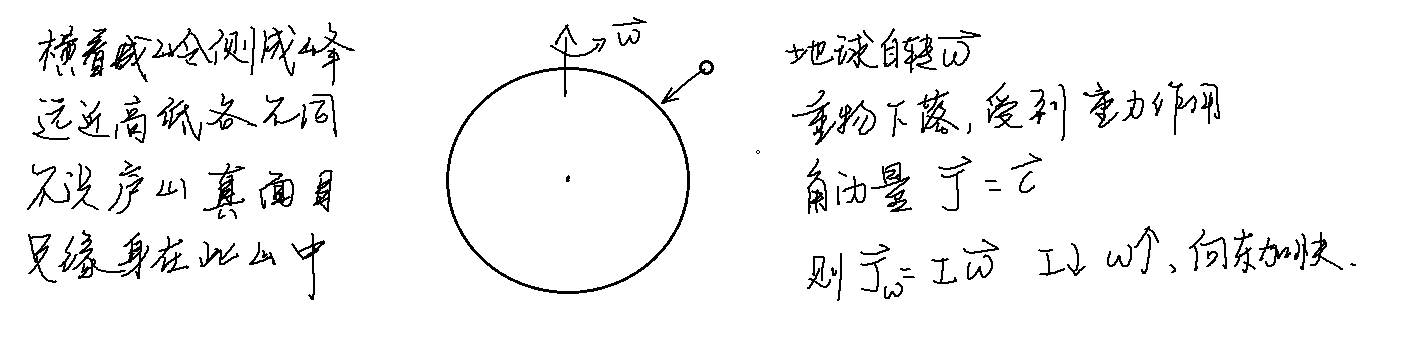 横看成岭侧成峰
远近高低各不同
不识庐山真面目
只缘身在此山中
ω⃗
地球自转ω⃗
重物下落,受到重力作用
角动量 J⃗ = C⃗
则 J⃗ω = Iω⃗ I↓ ω↑、向东加快.